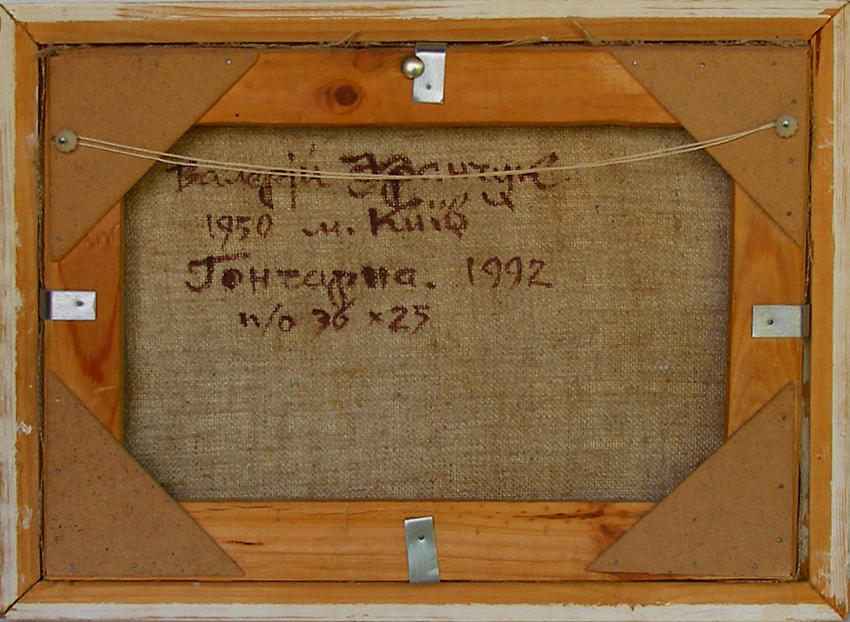 Валерій Франчук
1950 м. Київ
Гончарна. 1992
п/о 36 × 25